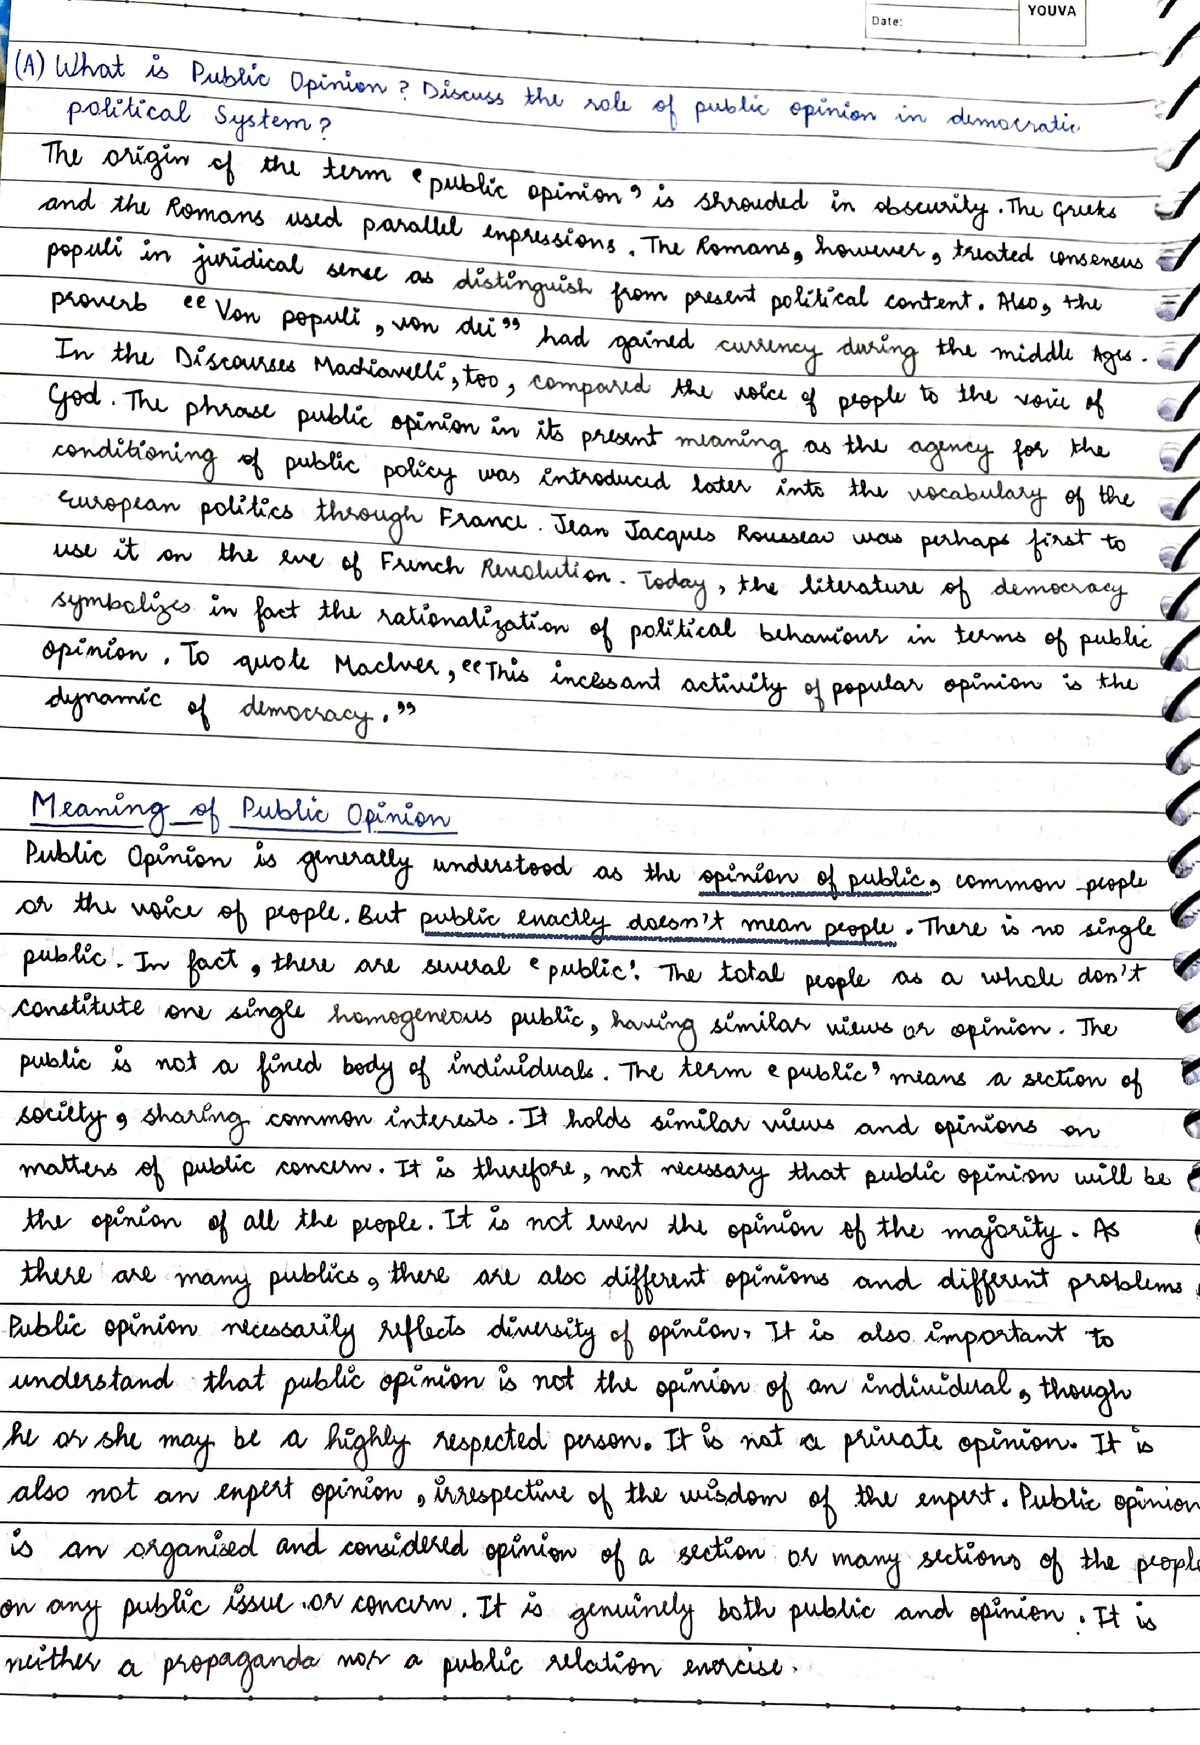 Date:
YOUVA
(A) What is Public Opinion? Discuss the role of public opinion in democratic
political System?
The origin of the term 'public opinion' is shrouded in obscurity. The Greeks
and the Romans used parallel expressions. The Romans, however, treated consensus
populi in juridical sense as distinguish from present political content. Also, the
proverb "Vox populi, vox dei" had gained currency during the middle Ages.
In the Discourses Machiavelli, too, compared the voice of people to the voice of
God. The phrase public opinion in its present meaning as the agency for the
conditioning of public policy was introduced later into the vocabulary of the
European politics through France. Jean Jacques Rousseau was perhaps first to
use it on the eve of French Revolution. Today, the literature of democracy
symbolizes in fact the rationalization of political behaviour in terms of public
opinion. To quote MacIver, "This incessant activity of popular opinion is the
dynamic of democracy."
Meaning of Public Opinion
Public Opinion is generally understood as the opinion of public, common people
or the voice of people. But public exactly doesn't mean people. There is no single
public. In fact, there are several 'public'. The total people as a whole don't
constitute one single homogeneous public, having similar views or opinion. The
public is not a fixed body of individuals. The term 'public' means a section of
society, sharing common interests. It holds similar views and opinions on
matters of public concern. It is therefore, not necessary that public opinion will be
the opinion of all the people. It is not even the opinion of the majority. As
there are many publics, there are also different opinions and different problems.
Public opinion necessarily reflects diversity of opinion. It is also important to
understand that public opinion is not the opinion of an individual, though
he or she may be a highly respected person. It is not a private opinion. It is
also not an expert opinion, irrespective of the wisdom of the expert. Public opinion
is an organised and considered opinion of a section or many sections of the people
on any public issue or concern. It is genuinely both public and opinion. It is
neither a propaganda nor a public relation exercise.